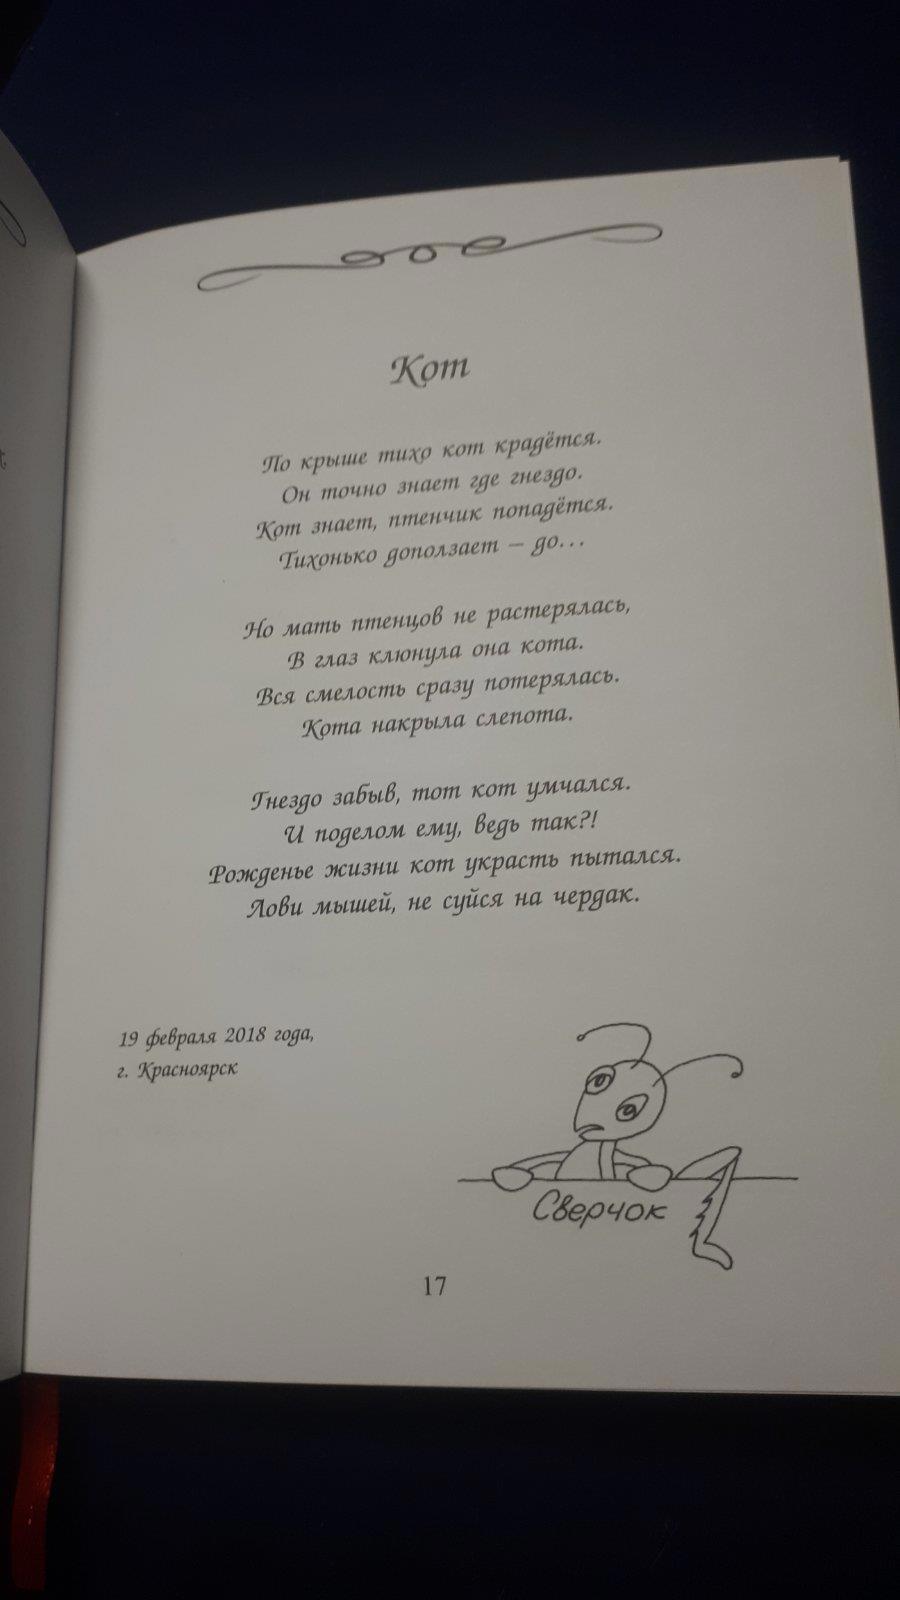 Кот
По крыше тихо кот крадётся.
Он точно знает где гнездо.
Кот знает, птенчик попадётся.
Тихонько доползает – до...
Но мать птенцов не растерялась,
В глаз клюнула она кота.
Вся смелость сразу потерялась.
Кота накрыла слепота.
Гнездо забыв, тот кот умчался.
И поделом ему, ведь так?!
Рожденье жизни кот украсть пытался.
Лови мышей, не суйся на чердак.
19 февраля 2018 года,
г. Красноярск
Сверчок
17